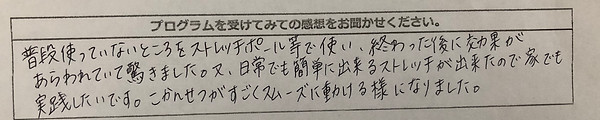 プログラムを受けてみての感想をお聞かせください。
普段使っていないところをストレッチポール等で使い、終わった後に効果が
あらわれていて驚きました。又、日常でも簡単に出来るストレッチが出来たので家でも
実践したいです。こかんせつがすごくスムーズに動ける様になりました。